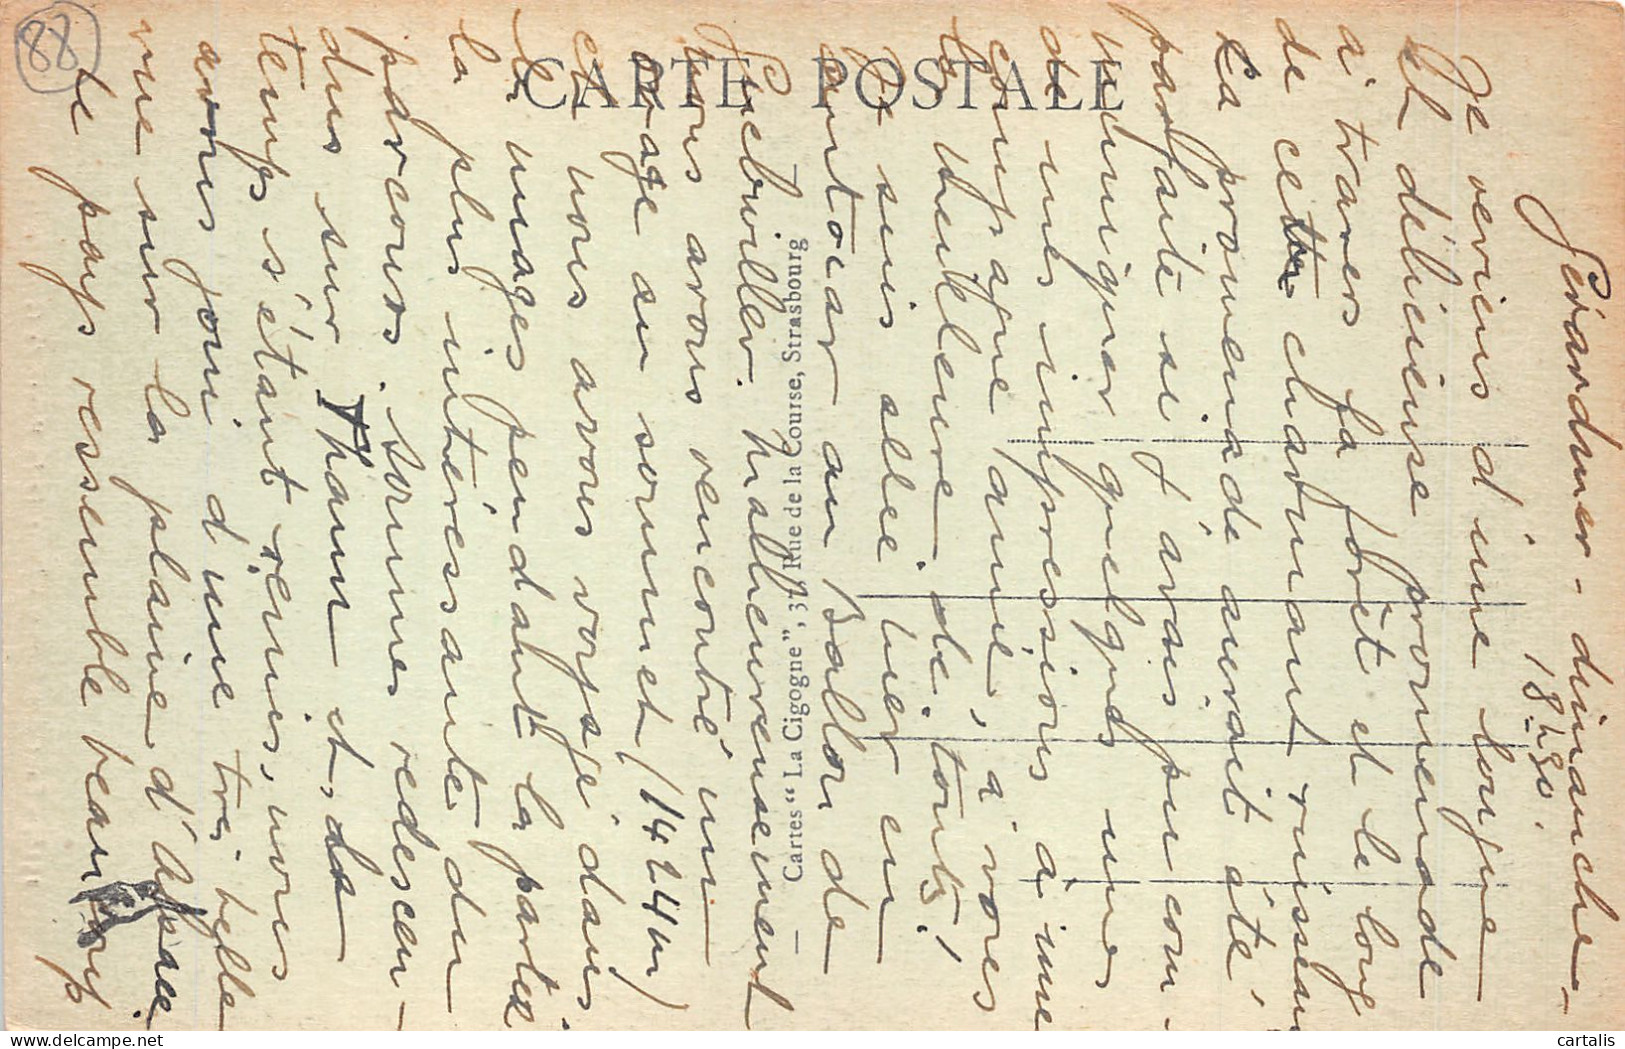 88
CARTE POSTALE
Cartes "La Cigogne", 3 Rue de la Course, Strasbourg
Gérardmer - dimanche
18
Je reviens d'une longue
et délicieuse promenade
à travers la forêt et le long
de cette charmant ruisseau
La promenade aurait été
parfaite si j'avais pu com-
muniquer quelques unes
de mes impressions à une
compagne amie, à vous
la meilleure de toutes!
Je suis allée hier en
autocar au Ballon de
Guebwiller. Malheureusement
nous avons rencontré un
orage au sommet (1424m)
et nous avons voyagé dans
les nuages pendant la partie
la plus intéressante du
parcours. Sommes redescen-
dus sur Thann et, le
temps s'étant remis, nous
avons joui d'une très belle
vue sur la plaine d'Alsace.
Ce pays ressemble beaucoup
cartalis
delcampe.net